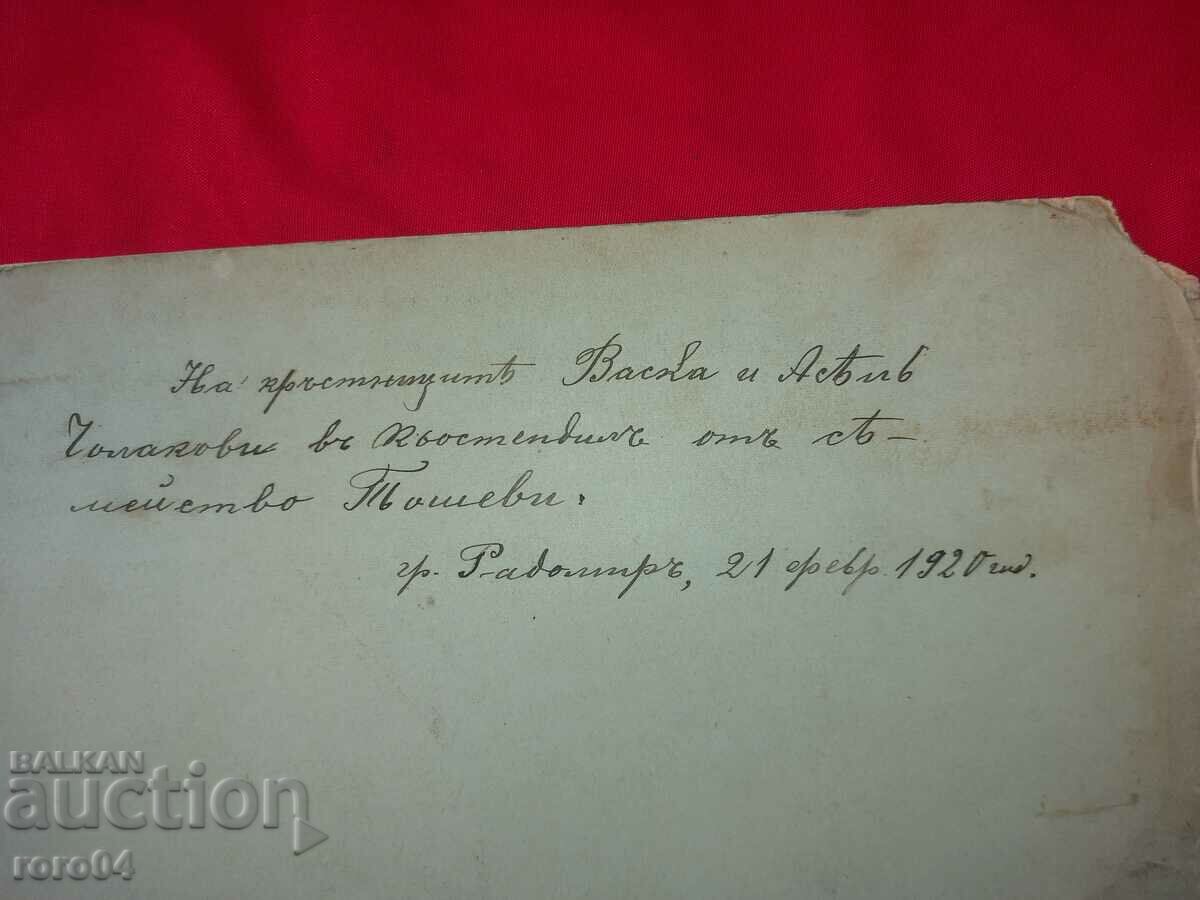 На кръстницитѣ Васка и Асѣнъ
Чолакови въ Кюстендилъ отъ сѣ-
мейство Тошеви.
гр. Радомиръ, 21 февр. 1920 год.
BALKAN
auction
roro04